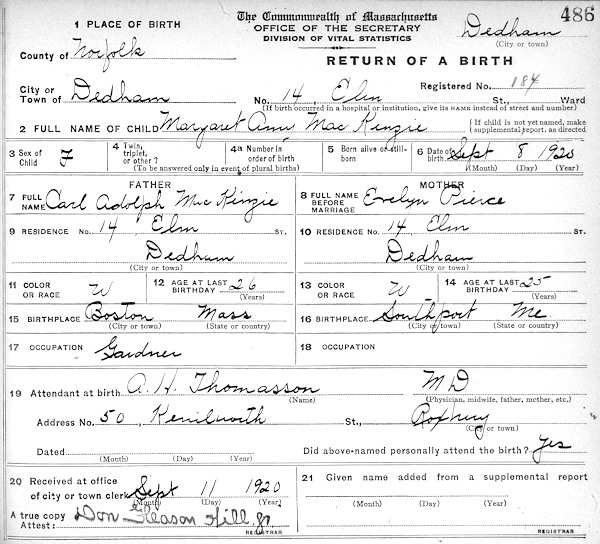 486
1 PLACE OF BIRTH
The Commonwealth of Massachusetts
OFFICE OF THE SECRETARY
DIVISION OF VITAL STATISTICS
Dedham
(City or town)
County of Norfolk
RETURN OF A BIRTH
City or Town of Dedham
Registered No. 184
No. 14, Elm St., Ward
(If birth occurred in a hospital or institution, give its NAME instead of street and number)
2 FULL NAME OF CHILD Margaret Ann Mac Kinzie
{If child is not yet named, make supplemental report, as directed
3 Sex of Child F
4 Twin, triplet, or other ?
4a Number in order of birth
(To be answered only in event of plural births)
5 Born alive or still-born
6 Date of birth Sept 8 1920
(Month) (Day) (Year)
FATHER
7 FULL NAME Carl Adolph Mac Kinzie
MOTHER
8 FULL NAME BEFORE MARRIAGE Evelyn Pierce
9 RESIDENCE No. 14, Elm ST.
Dedham
(City or town)
10 RESIDENCE No. 14, Elm ST.
Dedham
(City or town)
11 COLOR OR RACE W
12 AGE AT LAST BIRTHDAY 26
(Years)
13 COLOR OR RACE W
14 AGE AT LAST BIRTHDAY 25
(Years)
15 BIRTHPLACE Boston Mass
(City or town) (State or country)
16 BIRTHPLACE Southport Me
(City or town) (State or country)
17 OCCUPATION Gardner
18 OCCUPATION
19 Attendant at birth A. H. Thomasson M D
(Name) (Physician, midwife, father, mother, etc.)
Address No. 50, Kenilworth St., Roxbury
(City or town)
Dated
(Month) (Day) (Year)
Did above-named personally attend the birth? Yes
20 Received at office of city or town clerk Sept 11 1920
(Month) (Day) (Year)
21 Given name added from a supplemental report
(Month) (Day) (Year)
A true copy
Attest: Don Gleason Hill, Jr
REGISTRAR
REGISTRAR